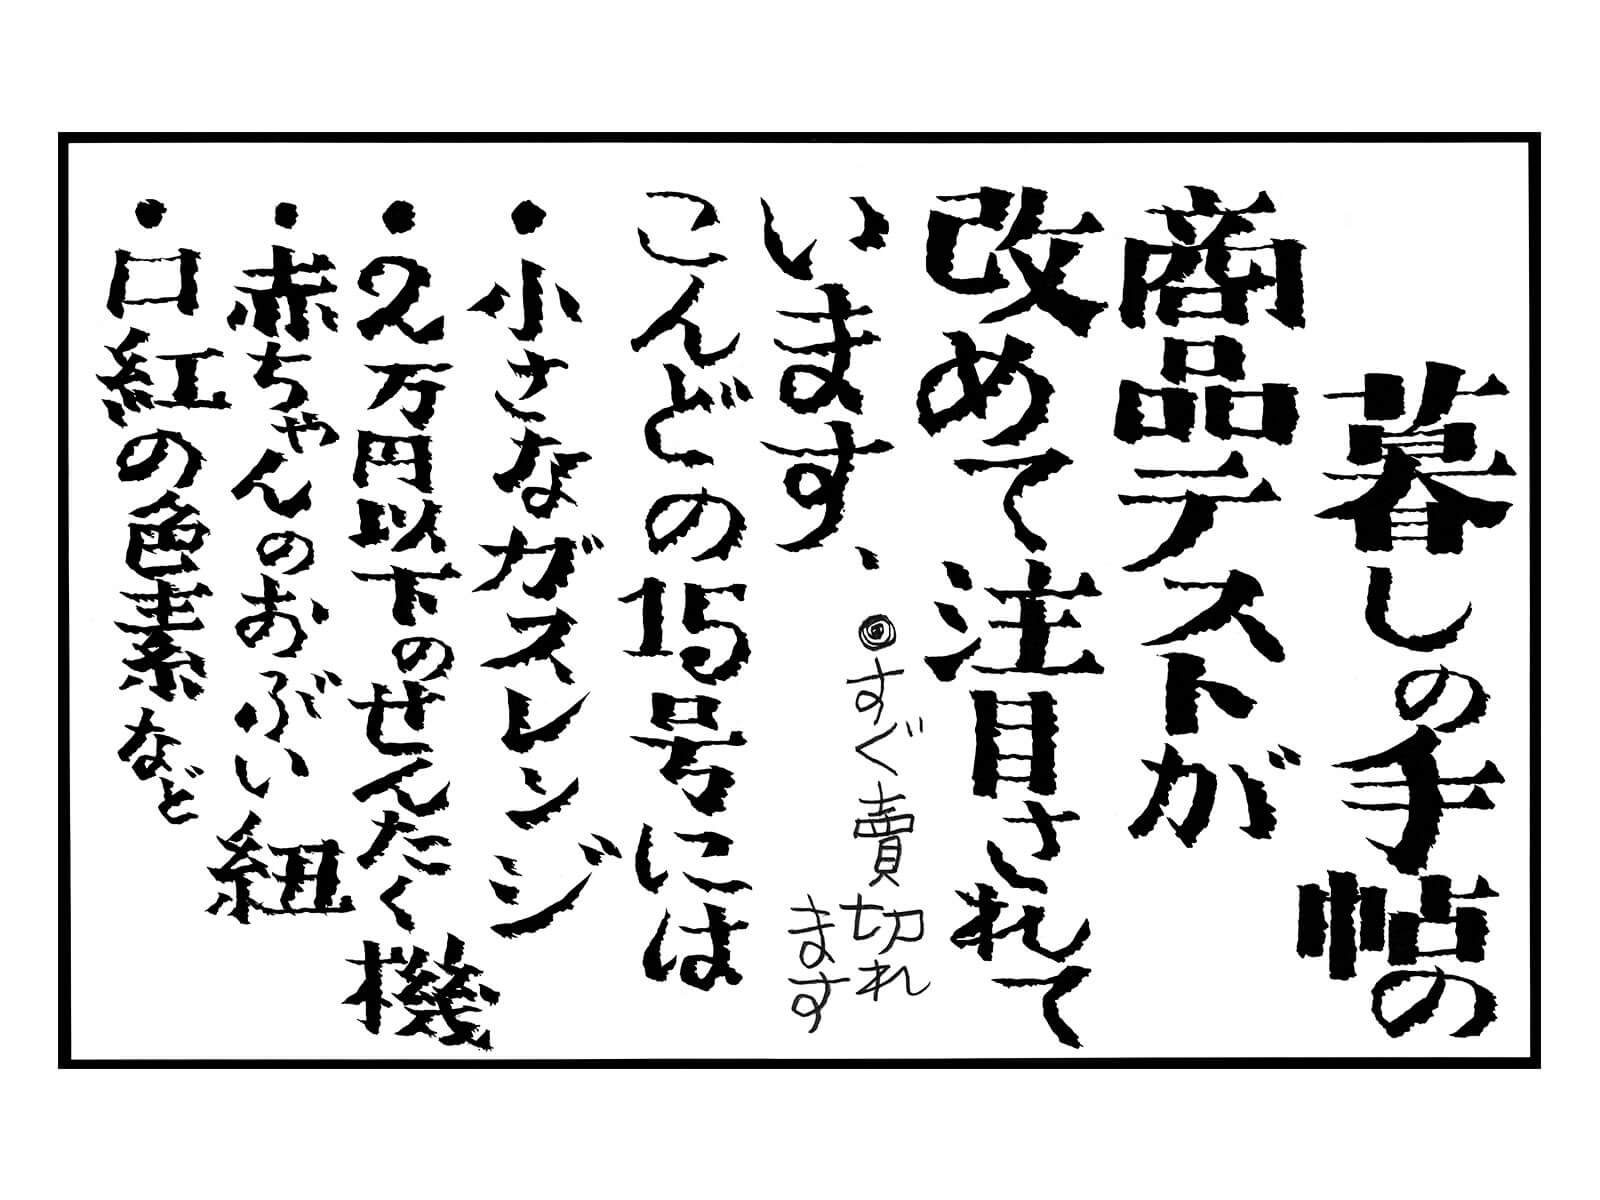 暮しの手帖の
商品テストが
改めて注目されて
います、
◉すぐ賣切れ
ます
こんどの15号には
・小さなガスレンジ
・2万円以下のせんたく機
・赤ちゃんのおぶい紐
・口紅の色素など